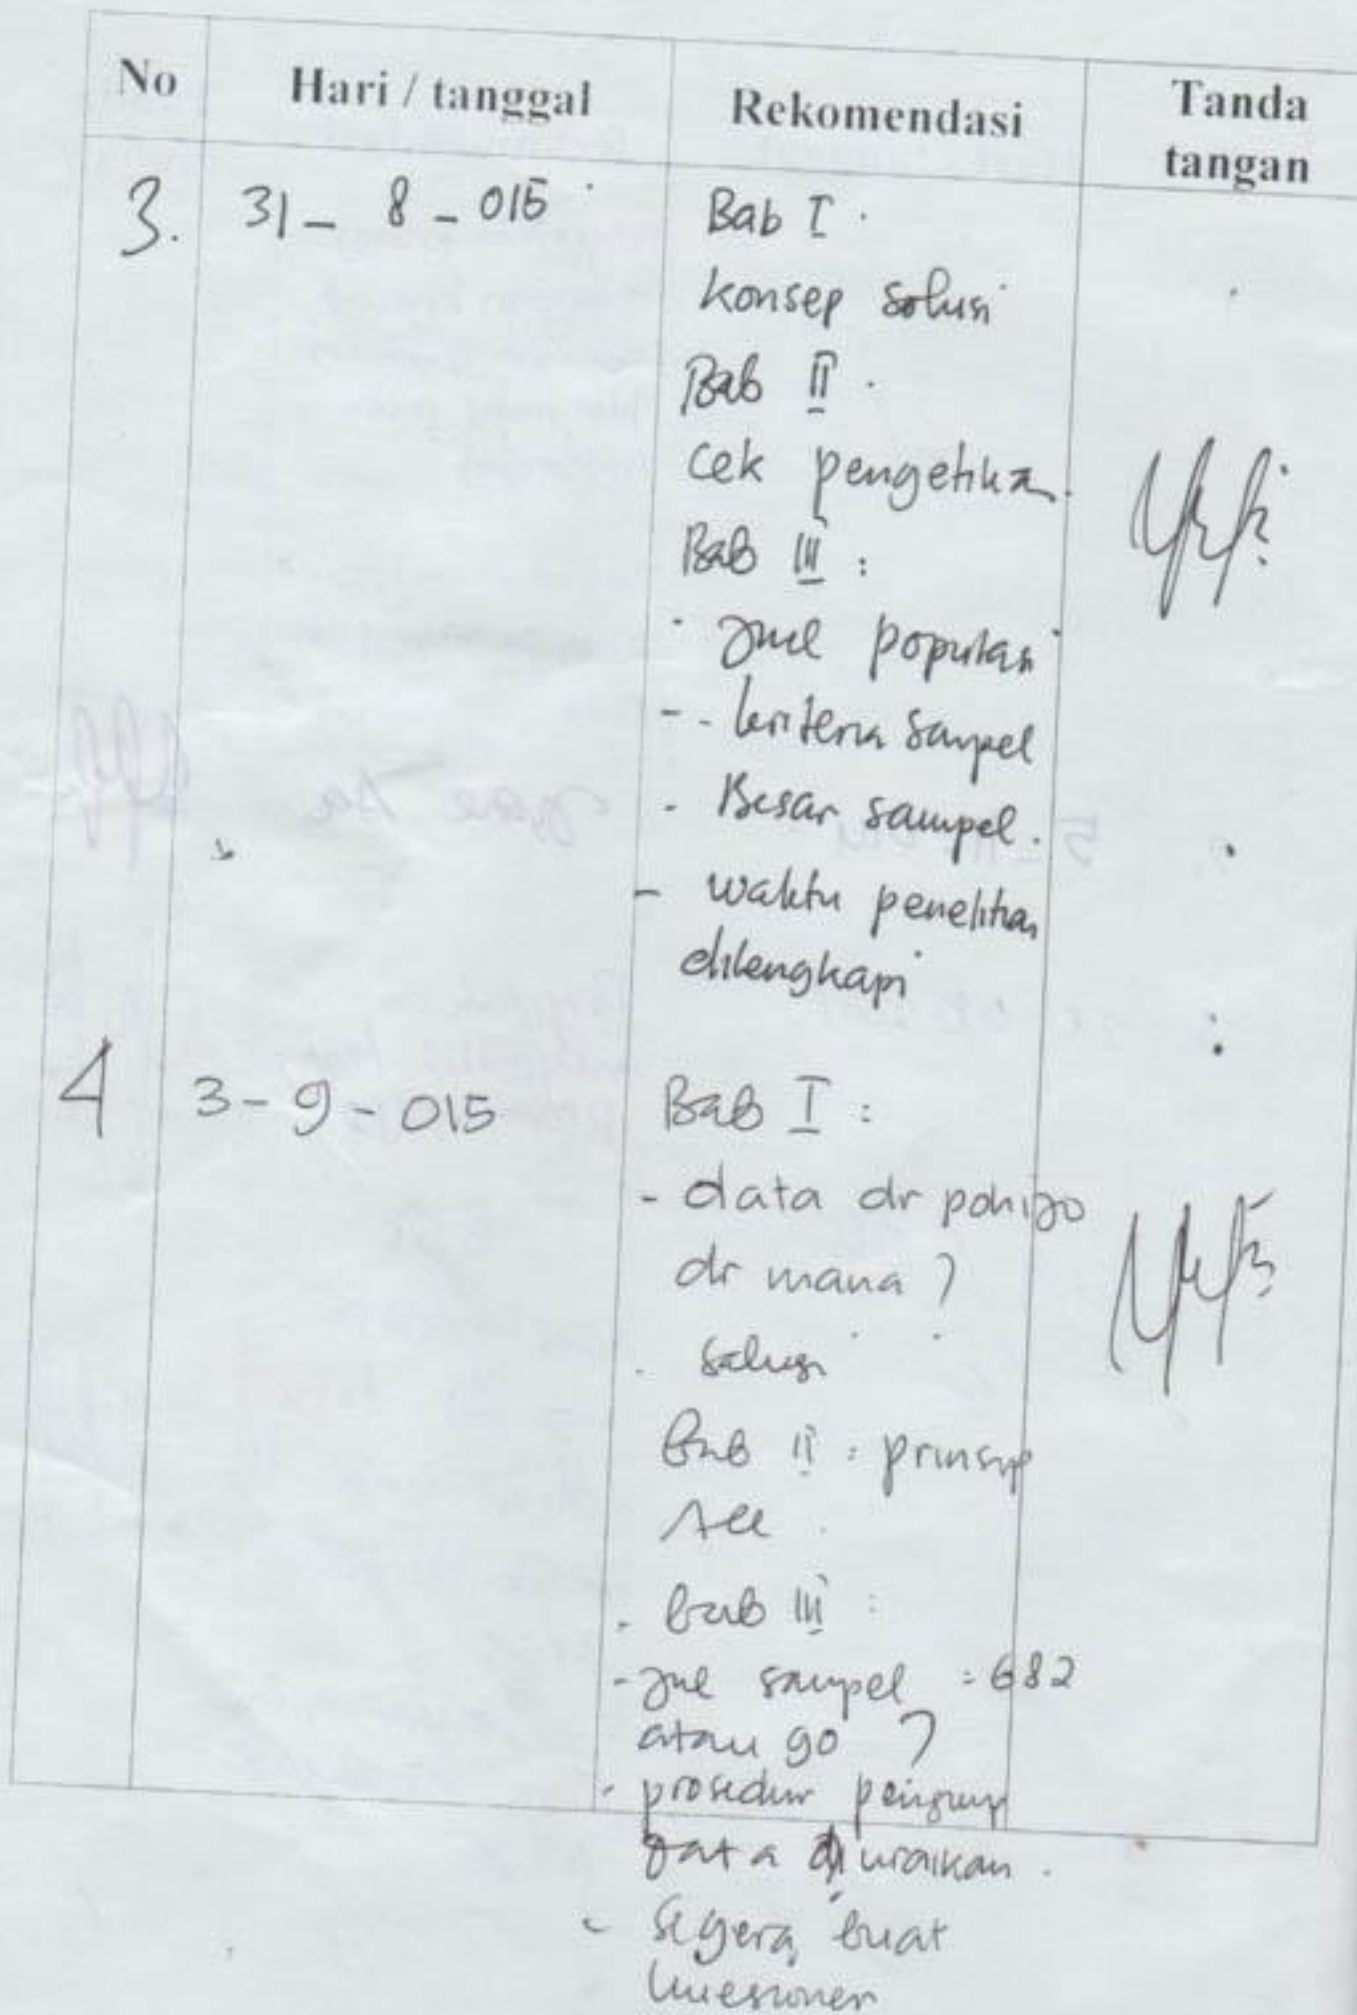 No Hari / tanggal Rekomendasi Tanda tangan
3. 31 - 8 - 015 Bab I.
konsep solusi
Bab II.
cek pengetikan.
Bab III :
- Jml populasi
- - kriteria sampel
- Besar sampel.
- waktu penelitian
dilengkapi
4 3 - 9 - 015 Bab I :
- data dr
dr mana ?
. solusi
Bab II : prinsip
Acc.
. bab III :
- Jml sampel = 682
atau 90 ?
- prosedur pengump
data diuraikan.
- segera buat
kuesioner